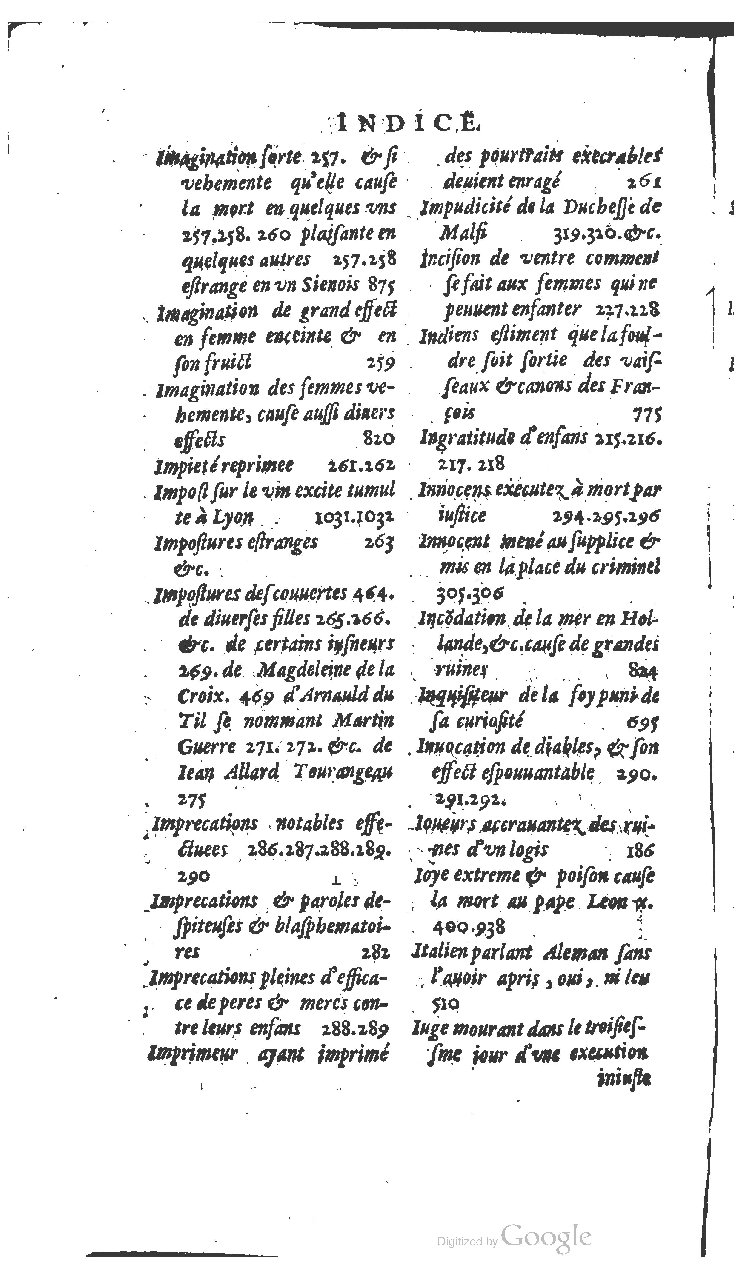 INDICE.
Imagination forte 257. & si
vehemente qu'elle cause
la mort en quelques vns
257.258. 260 plaisante en
quelques autres 257.258
estrange en vn Sienois 875
Imagination de grand effect
en femme enceinte & en
son fruict 259
Imagination des femmes ve-
hemente, cause aussi diuers
effects 820
Impieté reprimee 261.262
Impost sur le vin excite tumul
te à Lyon 1031.1032
Impostures estranges 263
&c.
Impostures descouuertes 464.
de diuerses filles 265.266.
&c. de certains
269. de Magdeleine de la
Croix. 469 d'Arnauld du
Til se nommant Martin
Guerre 271. 272. &c. de
Iean Allard Tourangeau
275
Imprecations notables effe-
ctuees 286.287.288.289.
290
Imprecations & paroles de-
spiteuses & blasphematoi-
res 282
Imprecations pleines d'effica-
ce de peres & meres con-
tre leurs enfans 288.289
Imprimeur ayant imprimé
des pourtraits execrables
deuient enragé 261
Impudicité de la Duchesse de
Malfi 319.320.&c.
Incision de ventre comment
se fait aux femmes qui ne
peuuent enfanter 227.228
Indiens estiment que la foul-
dre soit sortie des vais-
seaux & canons des Fran-
çois 775
Ingratitude d'enfans 215.216.
217. 218
Innocens executez à mort par
iustice 294.295.296
Innocent mené au supplice &
mis en la place du criminel
305.306
Inõdation de la mer en Hol-
lande, &c. cause de grandes
ruines 824
Inquisiteur de la foy puni de
sa curiosité 695
Inuocation de diables, & son
effect espouuantable 290.
291.292.
Ioueurs accrauantez des rui-
nes d'vn logis 186
Ioye extreme & poison cause
la mort au pape Leon x.
400.938
Italien parlant Aleman sans
l'auoir apris, oui, ni leu
510
Iuge mourant dans le troisies-
sme jour d'vne execution
iniuste
Digitized by Google